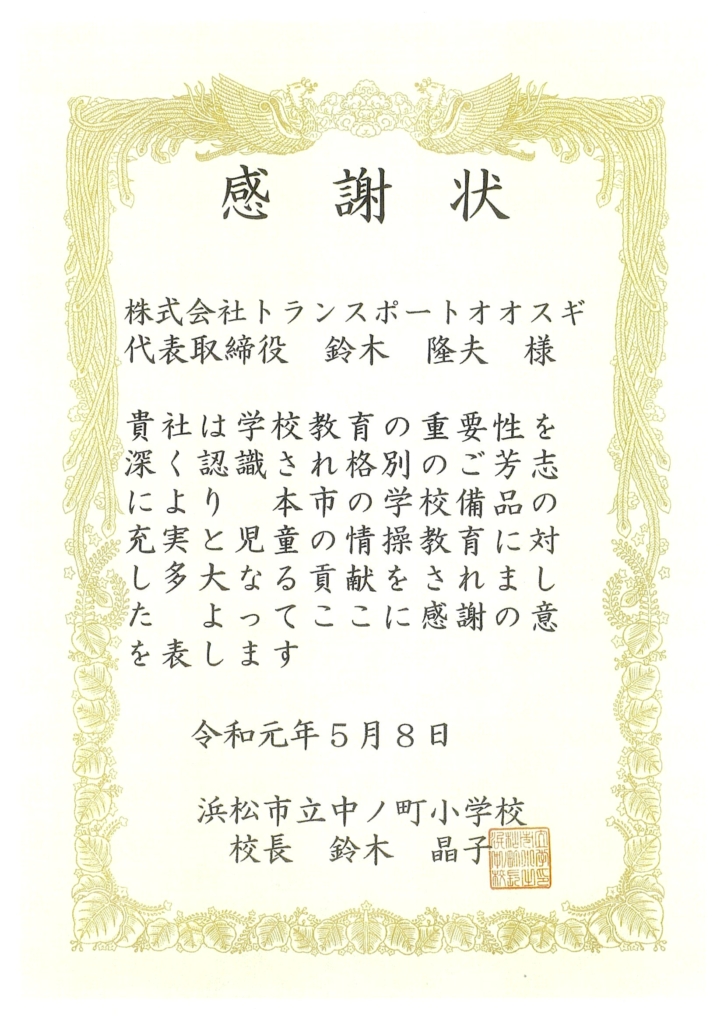 感　謝　状
株式会社トランスポートオオスギ
代表取締役　鈴木　隆夫　様
貴社は学校教育の重要性を
深く認識され格別のご芳志
により　本市の学校備品の
充実と児童の情操教育に対
し多大なる貢献をされまし
た　よってここに感謝の意
を表します
令和元年５月８日
浜松市立中ノ町小学校
校長　鈴木　晶子